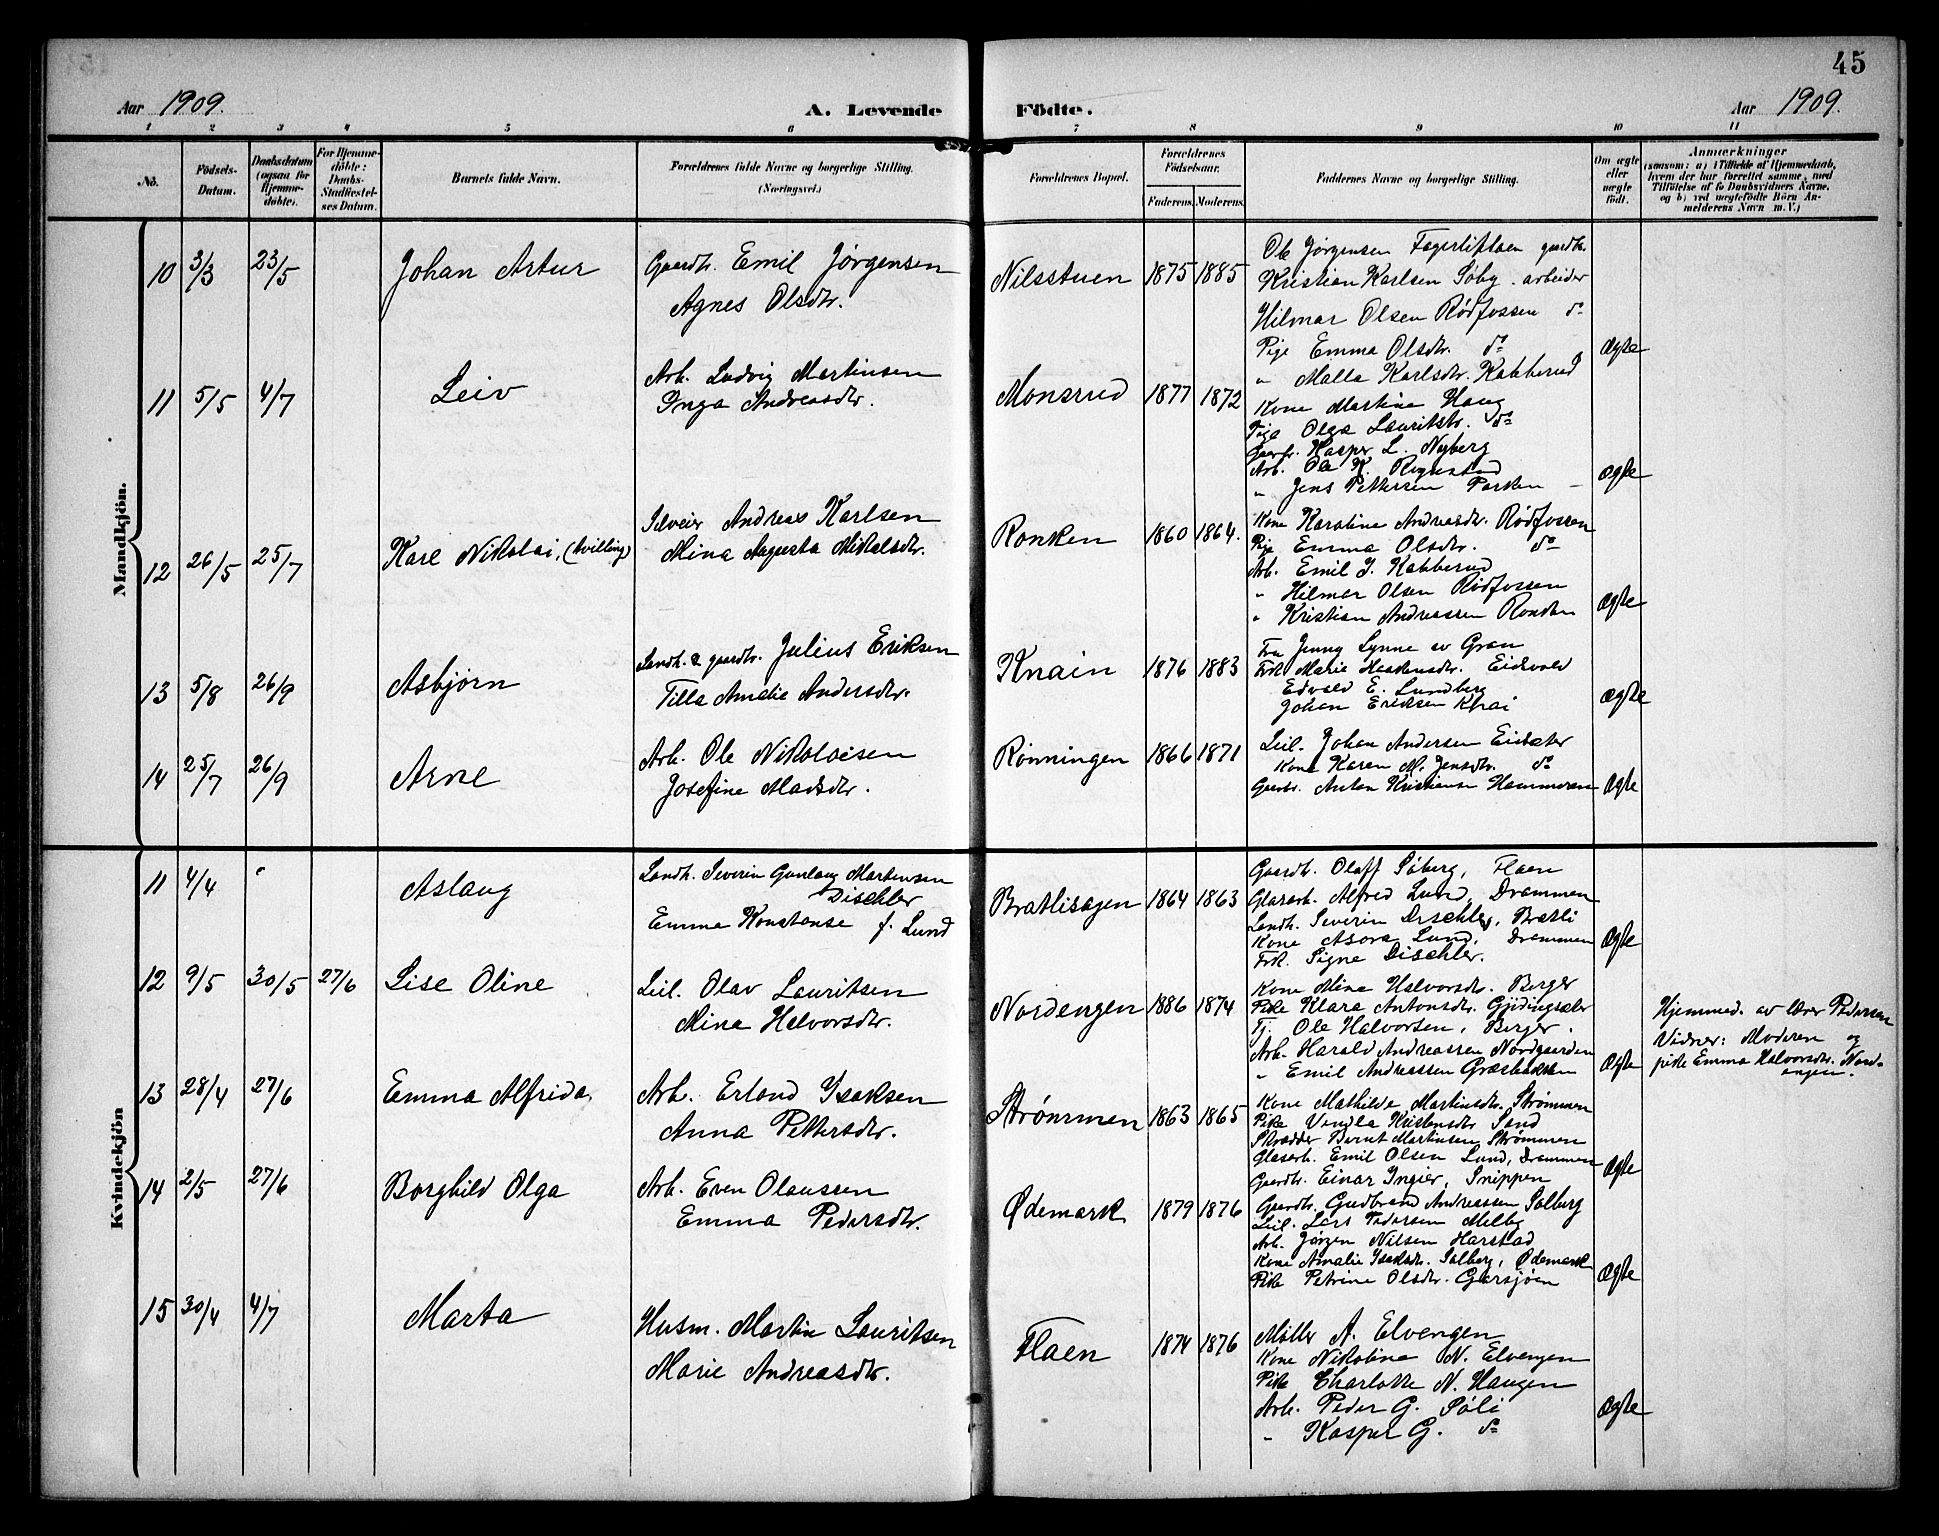 45
Aar 1909.
A. Levende Födte.
Aar 1909.
1 2 3 4 5 6 7 8 9 10 11
No.
Födsels-Datum.
Daabsdatum (ogsaa for Hjemme-döbte).
For Hjemme-döbte: Daabs-Stadfæstel-ses Datum.
Barnets fulde Navn.
Forældrenes fulde Navne og borgerlige Stilling. (Næringsvei.)
Forældrenes Bopæl.
Forældrenes Födselsaar.
Faderens. Moderens.
Faddernes Navne og borgerlige Stilling.
Om ægte eller uægte födt.
Anmærkninger
(saasom: a) i Tilfælde af Hjemmedaab, hvem der har forrettet samme, med Tilföielse af to Daabsvidners Navne, og b) ved uægtefödte Börn An-melderens Navn m. V.)
Mandkjön.
10 3/3 23/5 Johan Artur
Gaardbr. Emil Jørgensen
Agnes Olsdtr.
Nilsstuen 1875 1885
Ole Jørgensen Fagerliflaen gaardbr.
Kristian Karlsen Søby arbeider
Hilmar Olsen Rødfossen do
Pige Emma Olsdtr. do
" Malla Karlsdtr. Kabberud
ægte
11 5/5 4/7 Leiv
Arb. Ludvig Martinsen
Inga Andreasdtr.
Monsrud 1877 1872
Kone Martine Haug
Pige Olga Lauritsdtr. do
Gaardbr. Kasper L. Nyberg
Arb. Ole K.
" Jens Pettersen Parken
ægte
12 26/5 25/7 Kare Nikolai, (tvilling)
Selveier Andreas Karlsen
Mina Augusta Nikolaisdtr.
Ronken 1860 1864.
Kone Karoline Andreasdtr. Rødfossen
Pige Emma Olsdtr. do
Arb. Emil J. Kabberud
" Hilmar Olsen Rødfossen
" Kristian Andreassen Ronken
ægte
13 5/8 26/9 Asbjørn
Landh. & gaardbr. Julius Eriksen
Tilla Amalie Andersdtr.
Knain 1876 1883
Fru Jenny Lynne av Gran
Frk Marie Haakensdtr. Eidsvold
Edvald E. Lundberg
Johan Eriksen Knai
ægte
14 25/7 26/9 Arne
Arb. Ole Nikolaisen
Josefine Madsdtr.
Rønningen 1866 1871
Leil. Johan Andersen Eidsæter
Kone Karen M. Jensdtr. do
Gaardbr. Anton Kristiansen Hammeren
ægte
Kvindekjön
11 4/4 " Aslaug
Landh. Severin Gunlaug Martensen
Dischler
Emma Konstanse f. Lund
Bratlisagen 1864 1863
Gaardbr. Olaff Søberg, Flaen
Glasarb. Alfred Lund, Drammen
Landh. Severin Dischler, Bratli
Kone Asora Lund, Drammen
Frk. Signe Dischler.
ægte
12 9/5 30/5 27/6 Lise Oline
Leil. Olav Lauritsen
Mina Halvorsdtr.
Nordengen 1886 1874
Kone Mina Halvorsdtr. Berger
Pike Klara Antonsdtr. Gjødingsæter
Tj. Ole Halvorsen, Berger.
Arb. Harald Andreassen Nordgaarden
" Emil Andreassen Græsbakken
ægte
Hjemmed. av lærer Pedersen
Vidner: Moderen og
pike Emma Halvorsdtr. Nord-
engen.
13 28/4 27/6 Emma Alfrida
Arb. Erland Isaksen
Anna Pettersdtr.
Strømmen 1863 1865
Kone Mathilde Martinsdtr. Strømmen
Pike Vendla Kristensdtr Sand
Skrædder Bernt Martinsen Strømmen
Glasarb. Emil Olsen Lund, Drammen
Gaardbr. Einar Ingier, Snippen
ægte
14 2/5 27/6 Borghild Olga
Arb. Even Olaussen
Emma Pedersdtr.
Ødemark 1879 1876
Gaardbr. Gudbrand Andreassen Solberg
Leil. Lars Pedersen Melby
Arb. Jørgen Nilsen Harstad
Kone Amalie Isaksdtr. Solberg, Ødemark
Pike Petrine Olsdtr. Garsjøen
ægte
15 30/4 4/7 Marta
Husm. Martin Lauritsen
Marie Andreasdtr.
Flaen 1874 1876
Møller A. Elvengen
Kone Nikoline N. Elvengen
Pike Charlotte N. Haugen
Arb. Peder G. Søli
" Kasper G. do
ægte